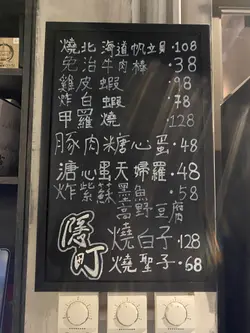 燒北海道帆立貝·108
免治牛肉棒·38
雞皮蝦·98
炸白蝦·78
甲羅燒·128
豚肉糖心蛋·48
溏心蛋天婦羅·48
炸紫蘇墨魚·58
高野豆腐
燒白子·128
燒聖子·68
隱町